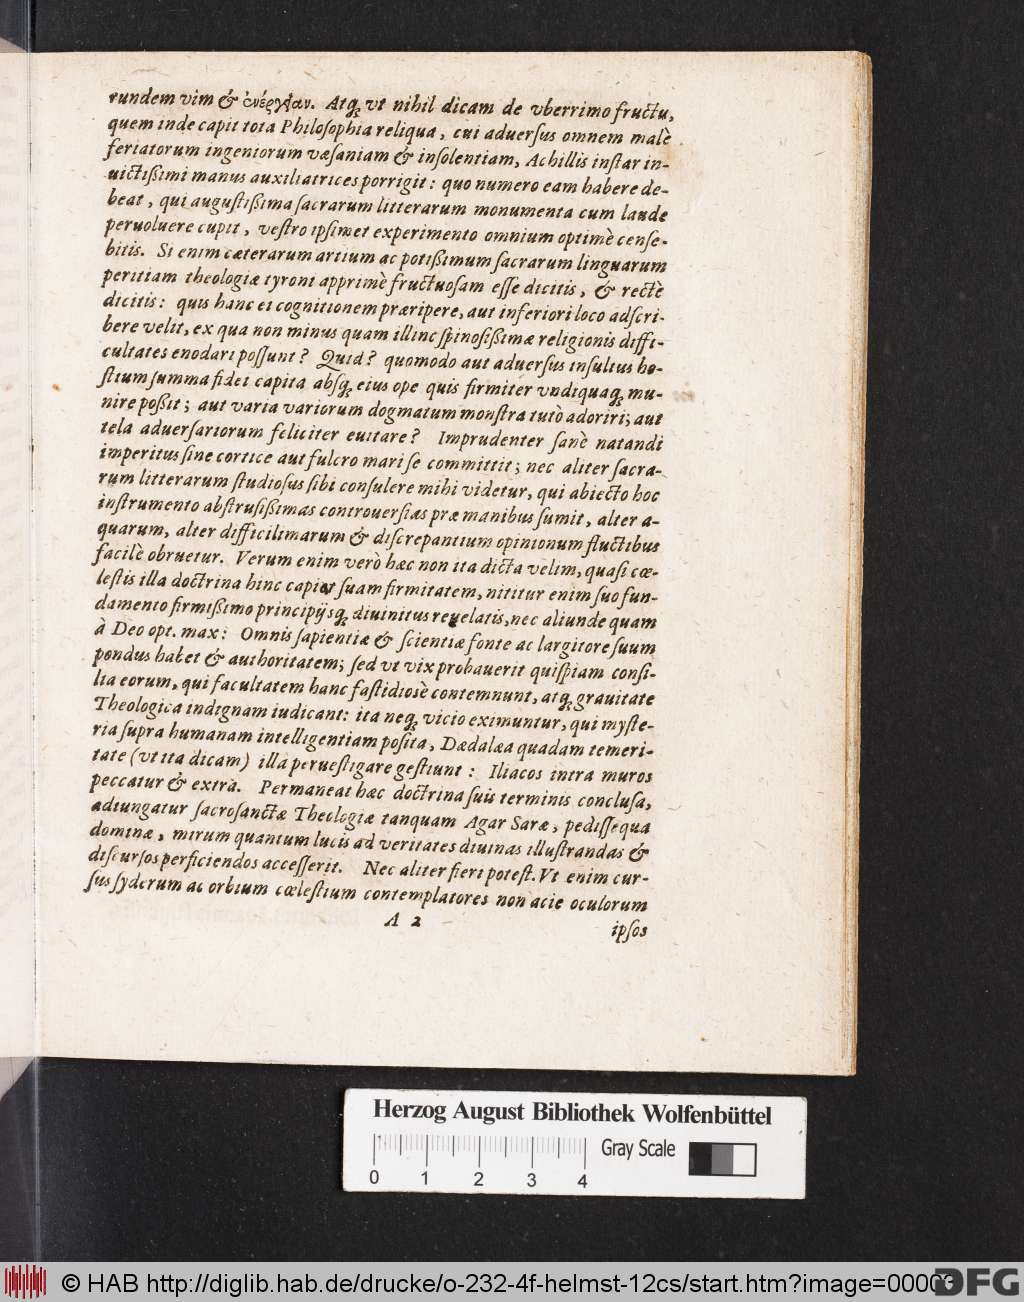 rundem vim & ἐνέργειαν. Atq; vt nihil dicam de vberrimo fructu,
quem inde capit tota Philosophia reliqua, cui aduersus omnem malè
feriatorum ingeniorum væsaniam & insolentiam, Achillis instar in-
uictißimi manus auxiliatrices porrigit: quo numero eam habere de-
beat, qui augustißima sacrarum litterarum monumenta cum laude
peruoluere cupit, vestro ipsimet experimento omnium optimè cense-
bitis. Si enim cæterarum artium ac potißimum sacrarum linguarum
peritiam theologiæ tyroni apprimè fructuosam esse dicitis, & rectè
dicitis: quis hanc ei cognitionem præripere, aut inferiori loco adscri-
bere velit, ex qua non minus quam illinc spinosißimæ religionis diffi-
cultates enodari possunt? Quid? quomodo aut aduersus insultus ho-
stium summa fidei capita absq; eius ope quis firmiter vndiquaq; mu-
nire poßit; aut varia variorum dogmatum monstra tutò adoriri; aut
tela aduersariorum feliciter euitare? Imprudenter sanè natandi
imperitus sine cortice aut fulcro mari se committit; nec aliter sacra-
rum litterarum studiosus sibi consulere mihi videtur, qui abiecto hoc
instrumento abstrusißimas controuersias præ manibus sumit, alter a-
quarum, alter difficilimarum & discrepantium opinionum fluctibus
facilè obruetur. Verum enim verò hæc non ita dicta velim, quasi cœ-
lestis illa doctrina hinc capiat suam firmitatem, nititur enim suo fun-
damento firmißimo principijsq; diuinitus reuelatis, nec aliunde quam
à Deo opt. max: Omnis sapientiæ & scientiæ fonte ac largitore suum
pondus habet & authoritatem; sed vt vix probauerit quispiam consi-
lia eorum, qui facultatem hanc fastidiosè contemnunt, atq; grauitate
Theologica indignam iudicant: ita neq; vicio eximuntur, qui myste-
ria supra humanam intelligentiam posita, Dædalæa quadam temeri-
tate (vt ita dicam) illa peruestigare gestiunt: Iliacos intra muros
peccatur & extrà. Permaneat hæc doctrina suis terminis conclusa,
adiungatur sacrosanctæ Theologiæ tanquam Agar Saræ, pedissequa
dominæ, mirum quantum lucis ad veritates diuinas illustrandas &
discursos perficiendos accesserit. Nec aliter fieri potest. Vt enim cur-
sus syderum ac orbium cœlestium contemplatores non acie oculorum
A 2
ipsos
Herzog August Bibliothek Wolfenbüttel
Gray Scale
0 1 2 3 4
© HAB http://diglib.hab.de/drucke/o-232-4f-helmst-12cs/start.htm?image=00003
DFG